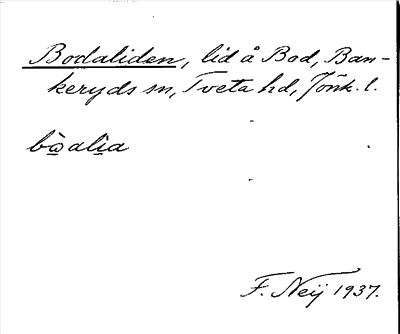 Bodaliden, lid å Bod, Ban-
keryds sn, Tveta hd, Jönk. l.
bὼ̠ali̠a
F. Neij 1937.